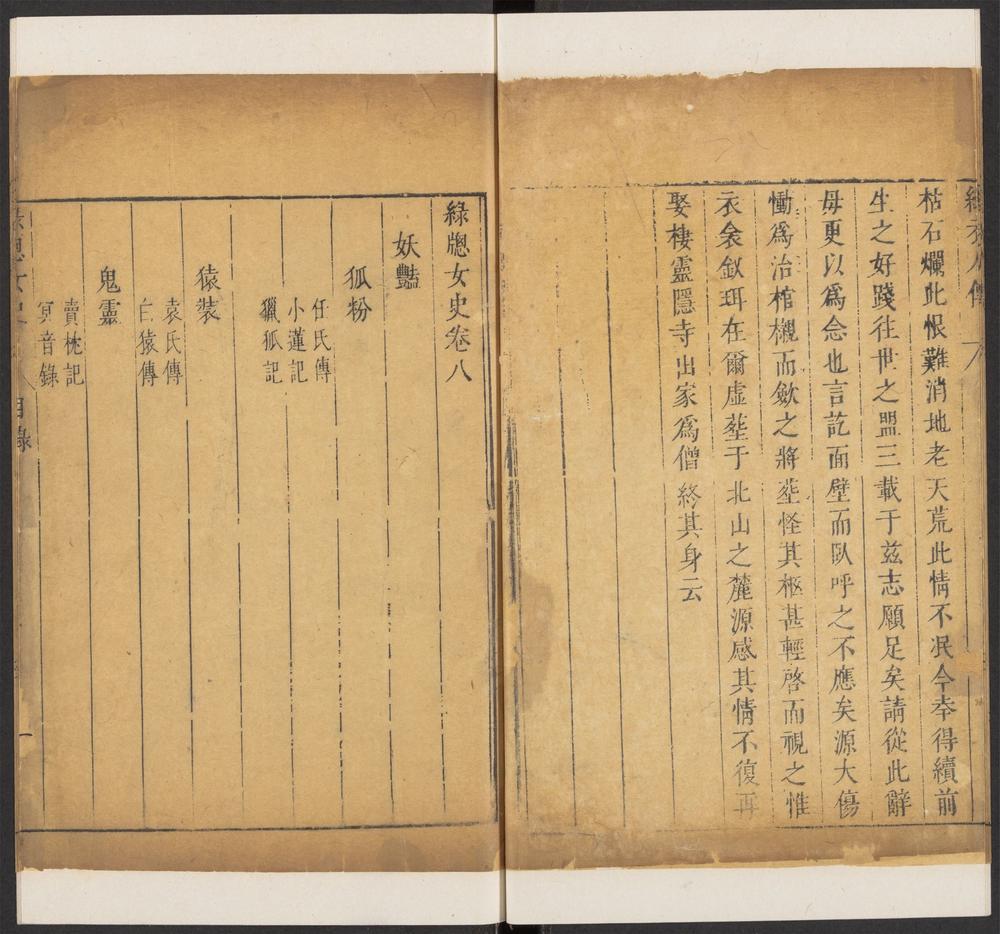 綠衣人傳 六
枯石爛此恨難消地老天荒此情不泯今幸得續前
生之好踐往世之盟三載于茲志願足矣請從此辭
毋更以爲念也言訖面壁而臥呼之不應矣源大傷
慟爲治棺櫬而歛之將塟怪其柩甚輕啓而視之惟
衣衾釵珥在爾虛塟于北山之麓源感其情不復再
娶棲靈隱寺出家爲僧終其身云
綠牕女史卷八
妖豔
狐粉
任氏傳
小蓮記
獵狐記
猿裝
袁氏傳
白猿傳
鬼靈
賣枕記
冥音錄
綠牕女史 目錄 一